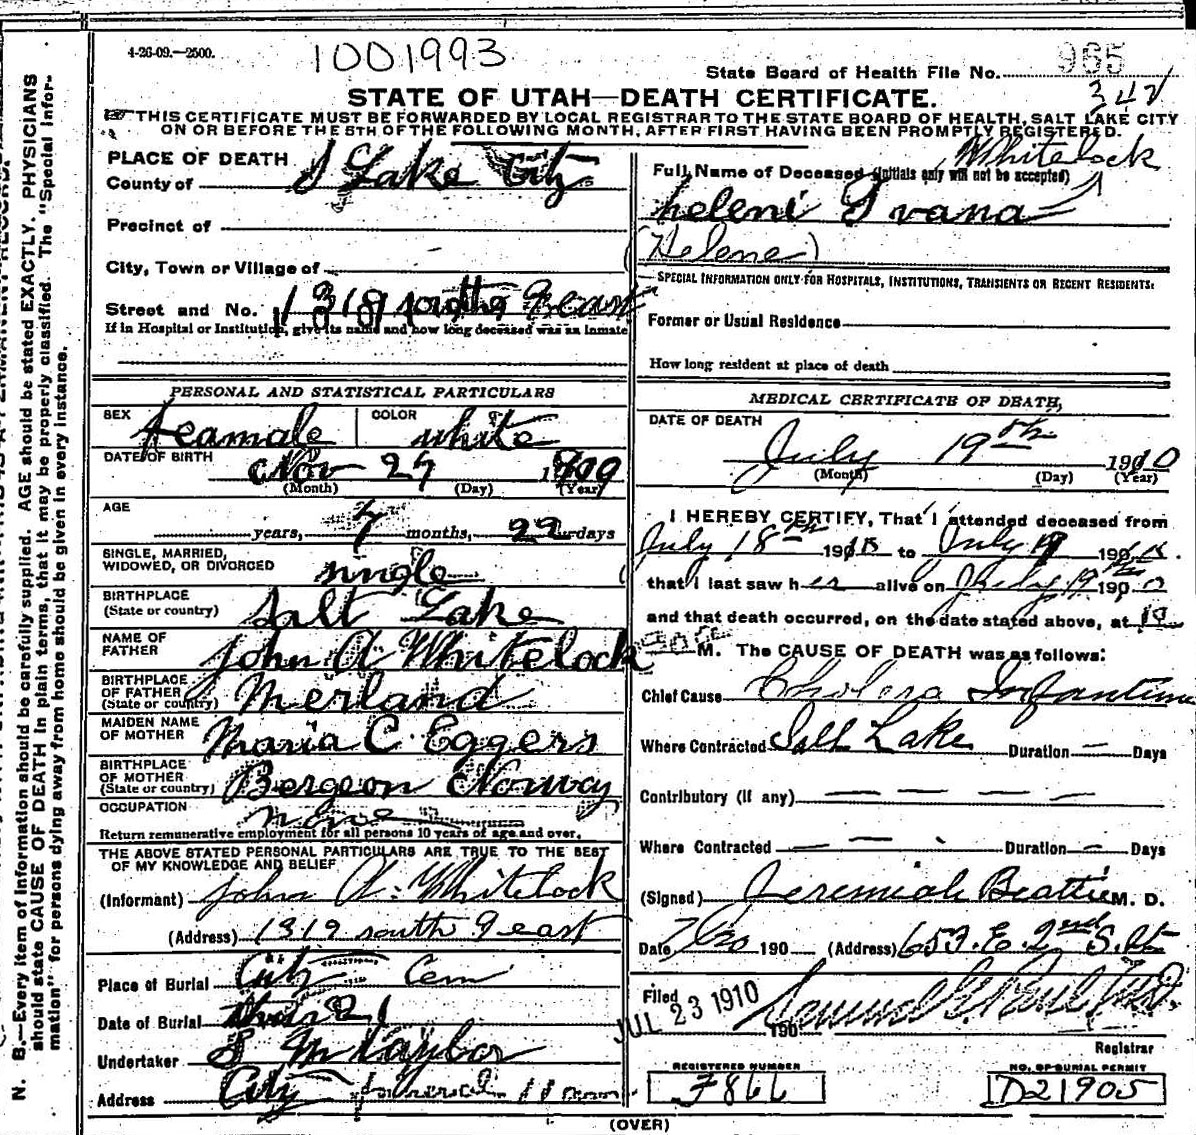 4-26-09.—2500.
1001993
State Board of Health File No. 965
342
STATE OF UTAH—DEATH CERTIFICATE.
THIS CERTIFICATE MUST BE FORWARDED BY LOCAL REGISTRAR TO THE STATE BOARD OF HEALTH, SALT LAKE CITY
ON OR BEFORE THE 5TH OF THE FOLLOWING MONTH, AFTER FIRST HAVING BEEN PROMPTLY REGISTERED.
N. B.—Every item of information should be carefully supplied. AGE should be stated EXACTLY. PHYSICIANS
should state CAUSE OF DEATH in plain terms, that it may be properly classified. The "Special Infor-
mation" for persons dying away from home should be given in every instance.
PLACE OF DEATH
County of S Lake City
Precinct of
City, Town or Village of
Street and No. 1319 south 9 east
If in Hospital or Institution, give its name and how long deceased was an inmate
PERSONAL AND STATISTICAL PARTICULARS
SEX feamale COLOR white
DATE OF BIRTH Nov 27 1909
(Month) (Day) (Year)
AGE
years, 7 months, 22 days
SINGLE, MARRIED,
WIDOWED, OR DIVORCED single
BIRTHPLACE
(State or country) Salt Lake
NAME OF
FATHER John A Whitelock
BIRTHPLACE
OF FATHER
(State or country) Merland
MAIDEN NAME
OF MOTHER Maria C. Eggers
BIRTHPLACE
OF MOTHER
(State or country) Bergeon Norway
OCCUPATION None
Return remunerative employment for all persons 10 years of age and over.
THE ABOVE STATED PERSONAL PARTICULARS ARE TRUE TO THE BEST
OF MY KNOWLEDGE AND BELIEF
(Informant) John A. Whitelock
(Address) 1319 south 9 east
Place of Burial City Cem
Date of Burial 21
Undertaker S M Taylor
Address City funeral 11 am
Whitelock
Full Name of Deceased (Initials only will not be accepted)
heleni Ivana
(Helene)
SPECIAL INFORMATION ONLY FOR HOSPITALS, INSTITUTIONS, TRANSIENTS OR RECENT RESIDENTS:
Former or Usual Residence
How long resident at place of death
MEDICAL CERTIFICATE OF DEATH,
DATE OF DEATH
July 19th 1910
(Month) (Day) (Year)
I HEREBY CERTIFY, That I attended deceased from
July 18th 190 to July 19 190
that I last saw her alive on July 19th 190
and that death occurred, on the date stated above, at 10
M. The CAUSE OF DEATH was as follows:
Chief Cause Cholera Infantum
Where Contracted Salt Lake Duration — Days
Contributory (if any) — — — —
Where Contracted — — — Duration — Days
(Signed) Jeremiah Beattie M. D.
Date 7/20 190 (Address) 653. E. 2nd S. St
Filed JUL 23 1910 190
Registrar
REGISTERED NUMBER
F866
NO. OF BURIAL PERMIT
D21905
(OVER)